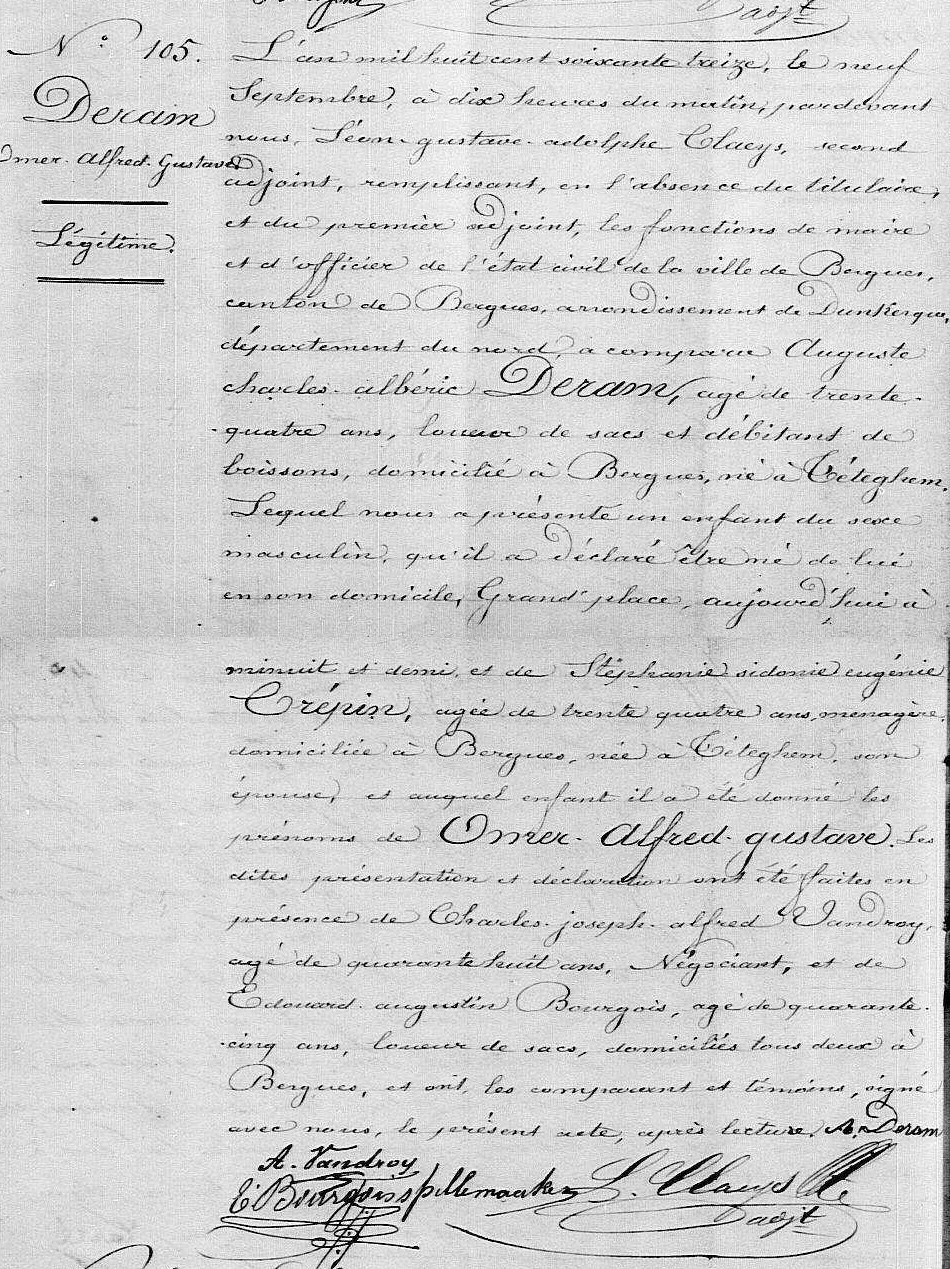 adjt
N° 105.
Deram
Omer-Alfred-Gustave
Légitime.
L'an mil huit cent soixante treize, le neuf
Septembre, à dix heures du matin, pardevant
nous, Léon-gustave-adolphe Claeys, second
adjoint, remplissant, en l'absence du titulaire,
et du premier adjoint, les fonctions de maire
et d'officier de l'état civil de la ville de Bergues,
canton de Bergues, arrondissement de Dunkerque,
département du nord, a comparu Auguste
charles-albéric Deram, agé de trente-
quatre ans, loueur de sacs et débitant de
boissons, domicilié à Bergues, né à Téteghem.
Lequel nous a présenté un enfant du sexe
masculin, qu'il a déclaré être né de lui
en son domicile, Grand'place, aujourd'hui à
minuit et demi, et de Stéphanie sidonie eugénie
Crépin, agée de trente quatre ans, ménagère,
domiciliée à Bergues, née à Téteghem, son
épouse, et auquel enfant il a été donné les
prénoms de Omer-Alfred-gustave. Les
dites présentation et déclaration ont été faites en
présence de Charles-joseph-alfred Vandroy,
agé de quarante huit ans, Négociant, et de
Edouard-augustin Bourgois, agé de quarante-
cinq ans, loueur de sacs, domiciliés tous deux à
Bergues, et ont, les comparant et témoins, signé
avec nous, le présent acte, après lecture. A. Deram
A. Vandroy
E Bourgois spillemaeker L. Claeys
adjt